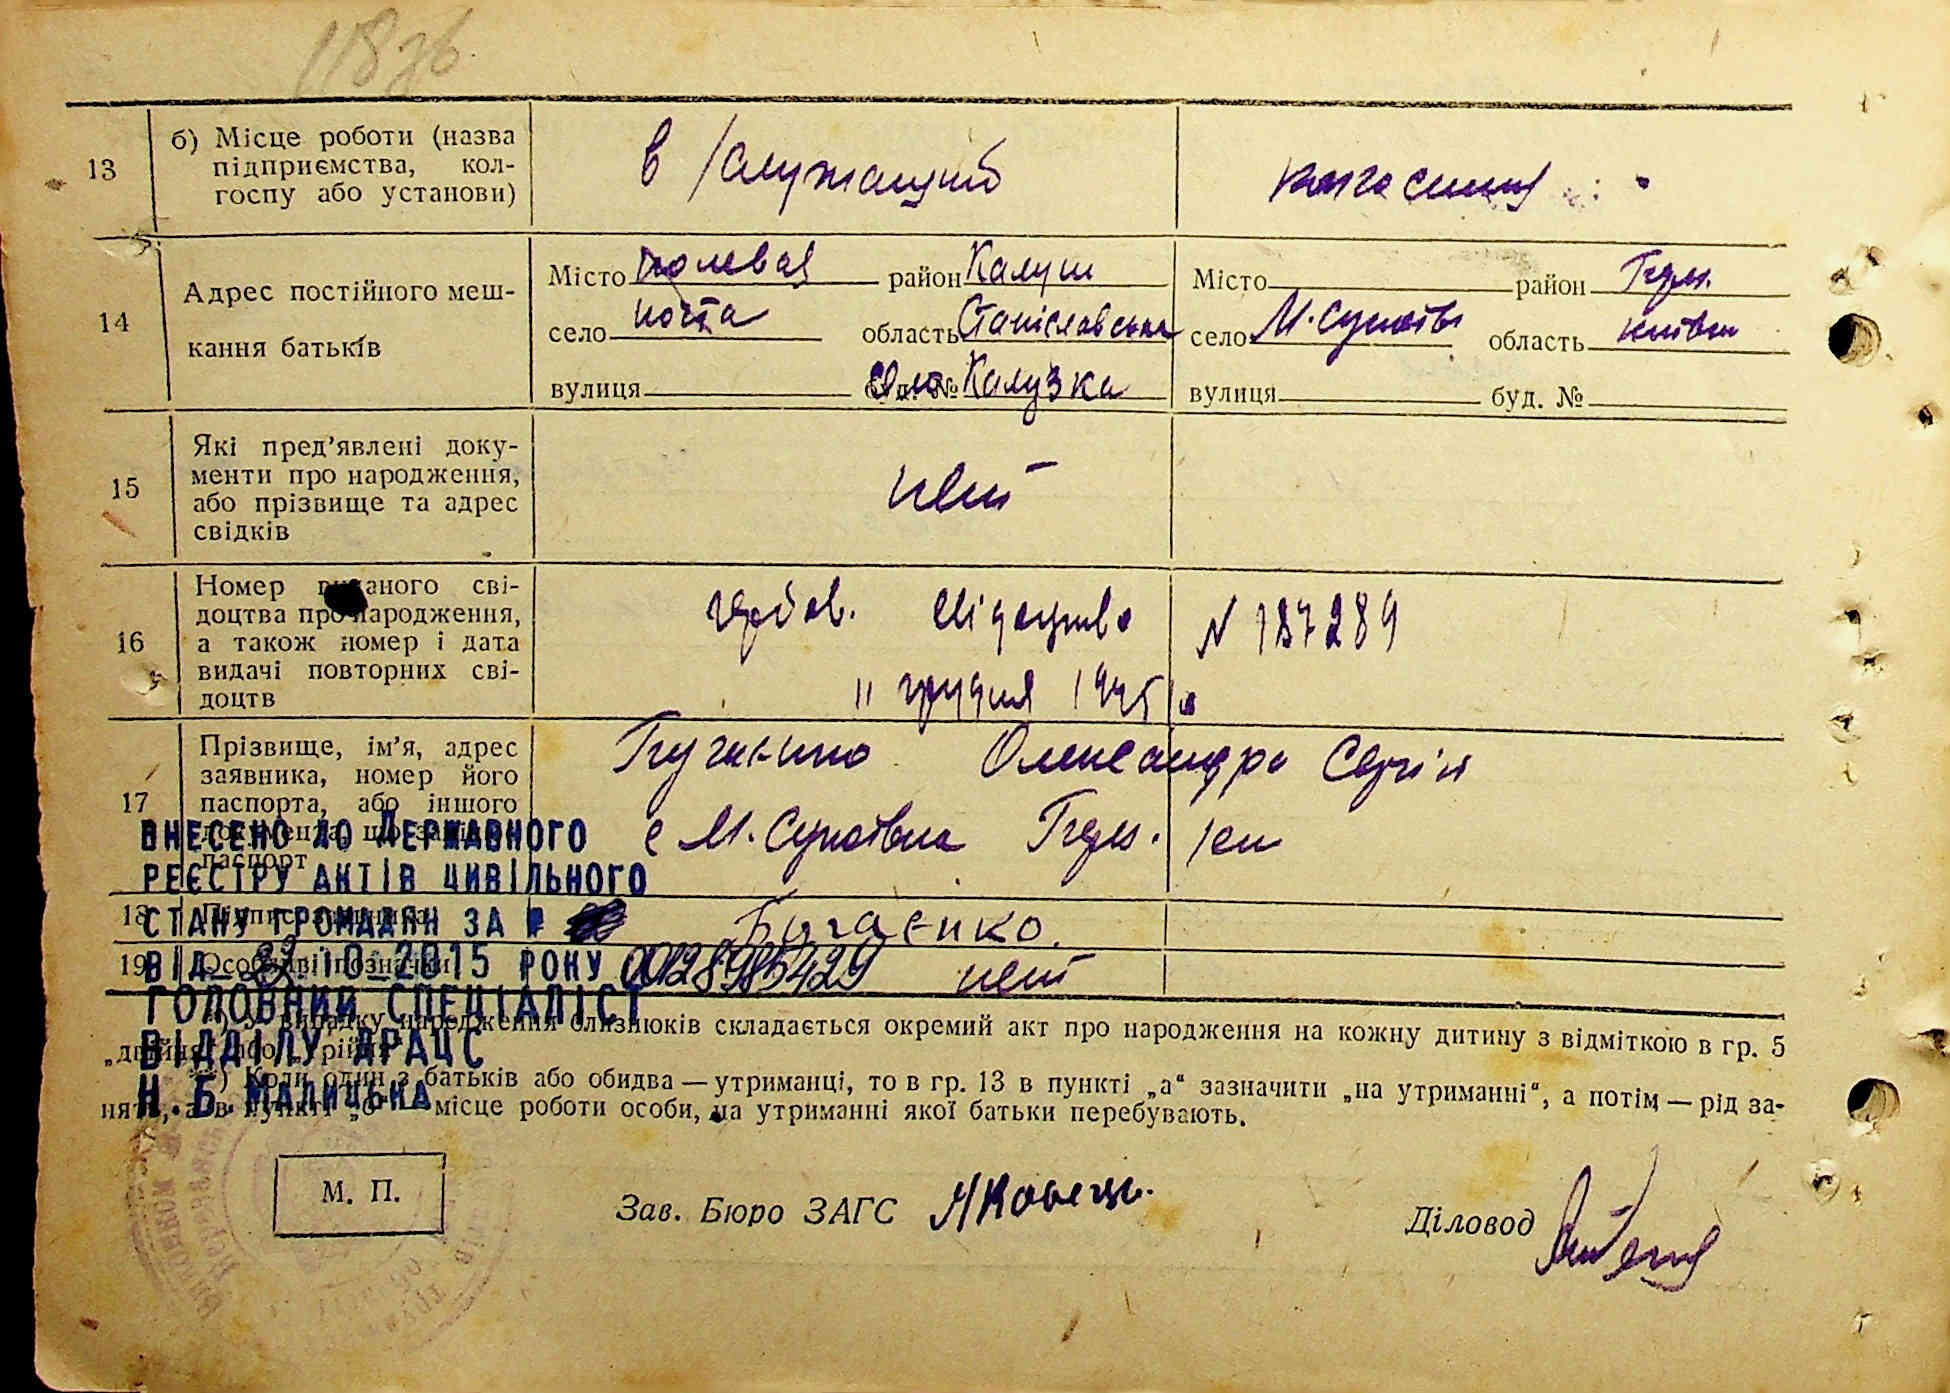 118 зв
13
б) Місце роботи (назва
підприємства, кол-
госпу або установи)
в/служащий
14
Адрес постійного меш-
кання батьків
Місто Полевая район Калуш
село почта область Станіславська
вулиця буд. № село Калузка
Місто район
село М. Супоївка область
вулиця буд. №
15
Які пред’явлені доку-
менти про народження,
або прізвище та адрес
свідків
нет
16
Номер виданого сві-
доцтва про народження,
а також номер і дата
видачі повторних сві-
доцтв
свідоцтво № 187289
11 грудня 1945 р
17
Прізвище, ім’я, адрес
заявника, номер його
паспорта, або іншого
документа, що
паспорт
Олександра
с М. Супоївка
18
19 Особливі позначки
нет
ВНЕСЕНО ДО ДЕРЖАВНОГО
РЕЄСТРУ АКТІВ ЦИВІЛЬНОГО
СТАНУ ГРОМАДЯН ЗА №
ВІД 10 2015 РОКУ 00128985429
ГОЛОВНИЙ СПЕЦІАЛІСТ
ВІДДІЛУ ДРАЦС
Н. Б. МАЛИЦЬКА
*) У випадку народження близнюків складається окремий акт про народження на кожну дитину з відміткою в гр. 5
„двійня“ або „трійня“
**) Коли один з батьків або обидва — утриманці, то в гр. 13 в пункті „а“ зазначити „на утриманні“, а потім — рід за-
няття, а в пункті „б“ — місце роботи особи, на утриманні якої батьки перебувають.
М. П.
Зав. Бюро ЗАГС
Діловод